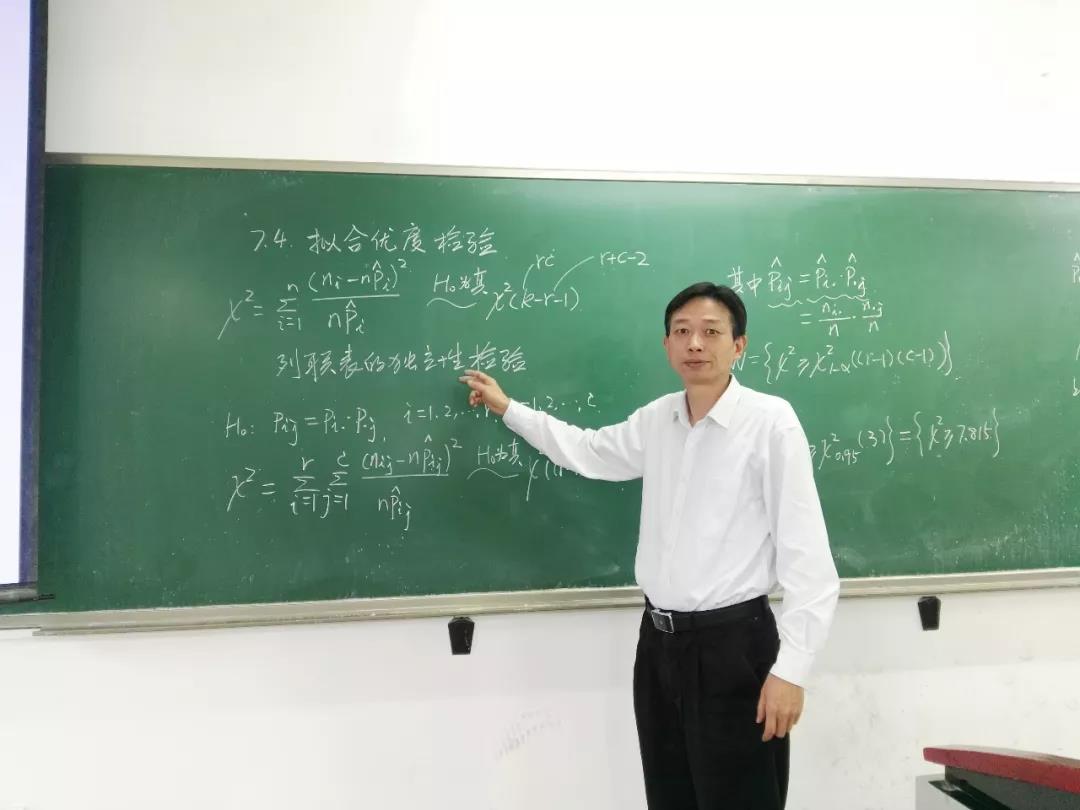 7.4. 拟合优度检验
χ² = Σ_{i=1}^{n} (nᵢ-np̂ᵢ)²/np̂ᵢ H₀为真 ~ χ²(k-r-1) rc r+c-2
列联表的独立性检验
H₀: Pᵢⱼ = Pᵢ.·P.ⱼ, i=1,2,… =1,2,…,c
χ² = Σ_{i=1}^{r} Σ_{j=1}^{c} (nᵢⱼ-np̂ᵢⱼ)²/np̂ᵢⱼ H₀为真 ~ χ
其中 p̂ᵢⱼ = p̂ᵢ.·p̂.ⱼ
= nᵢ./n · n.ⱼ/n
= {χ² ≥ χ²₁₋α((r-1)(c-1))}
≥ χ²₀.₉₅(3)} = {χ² ≥ 7.815}